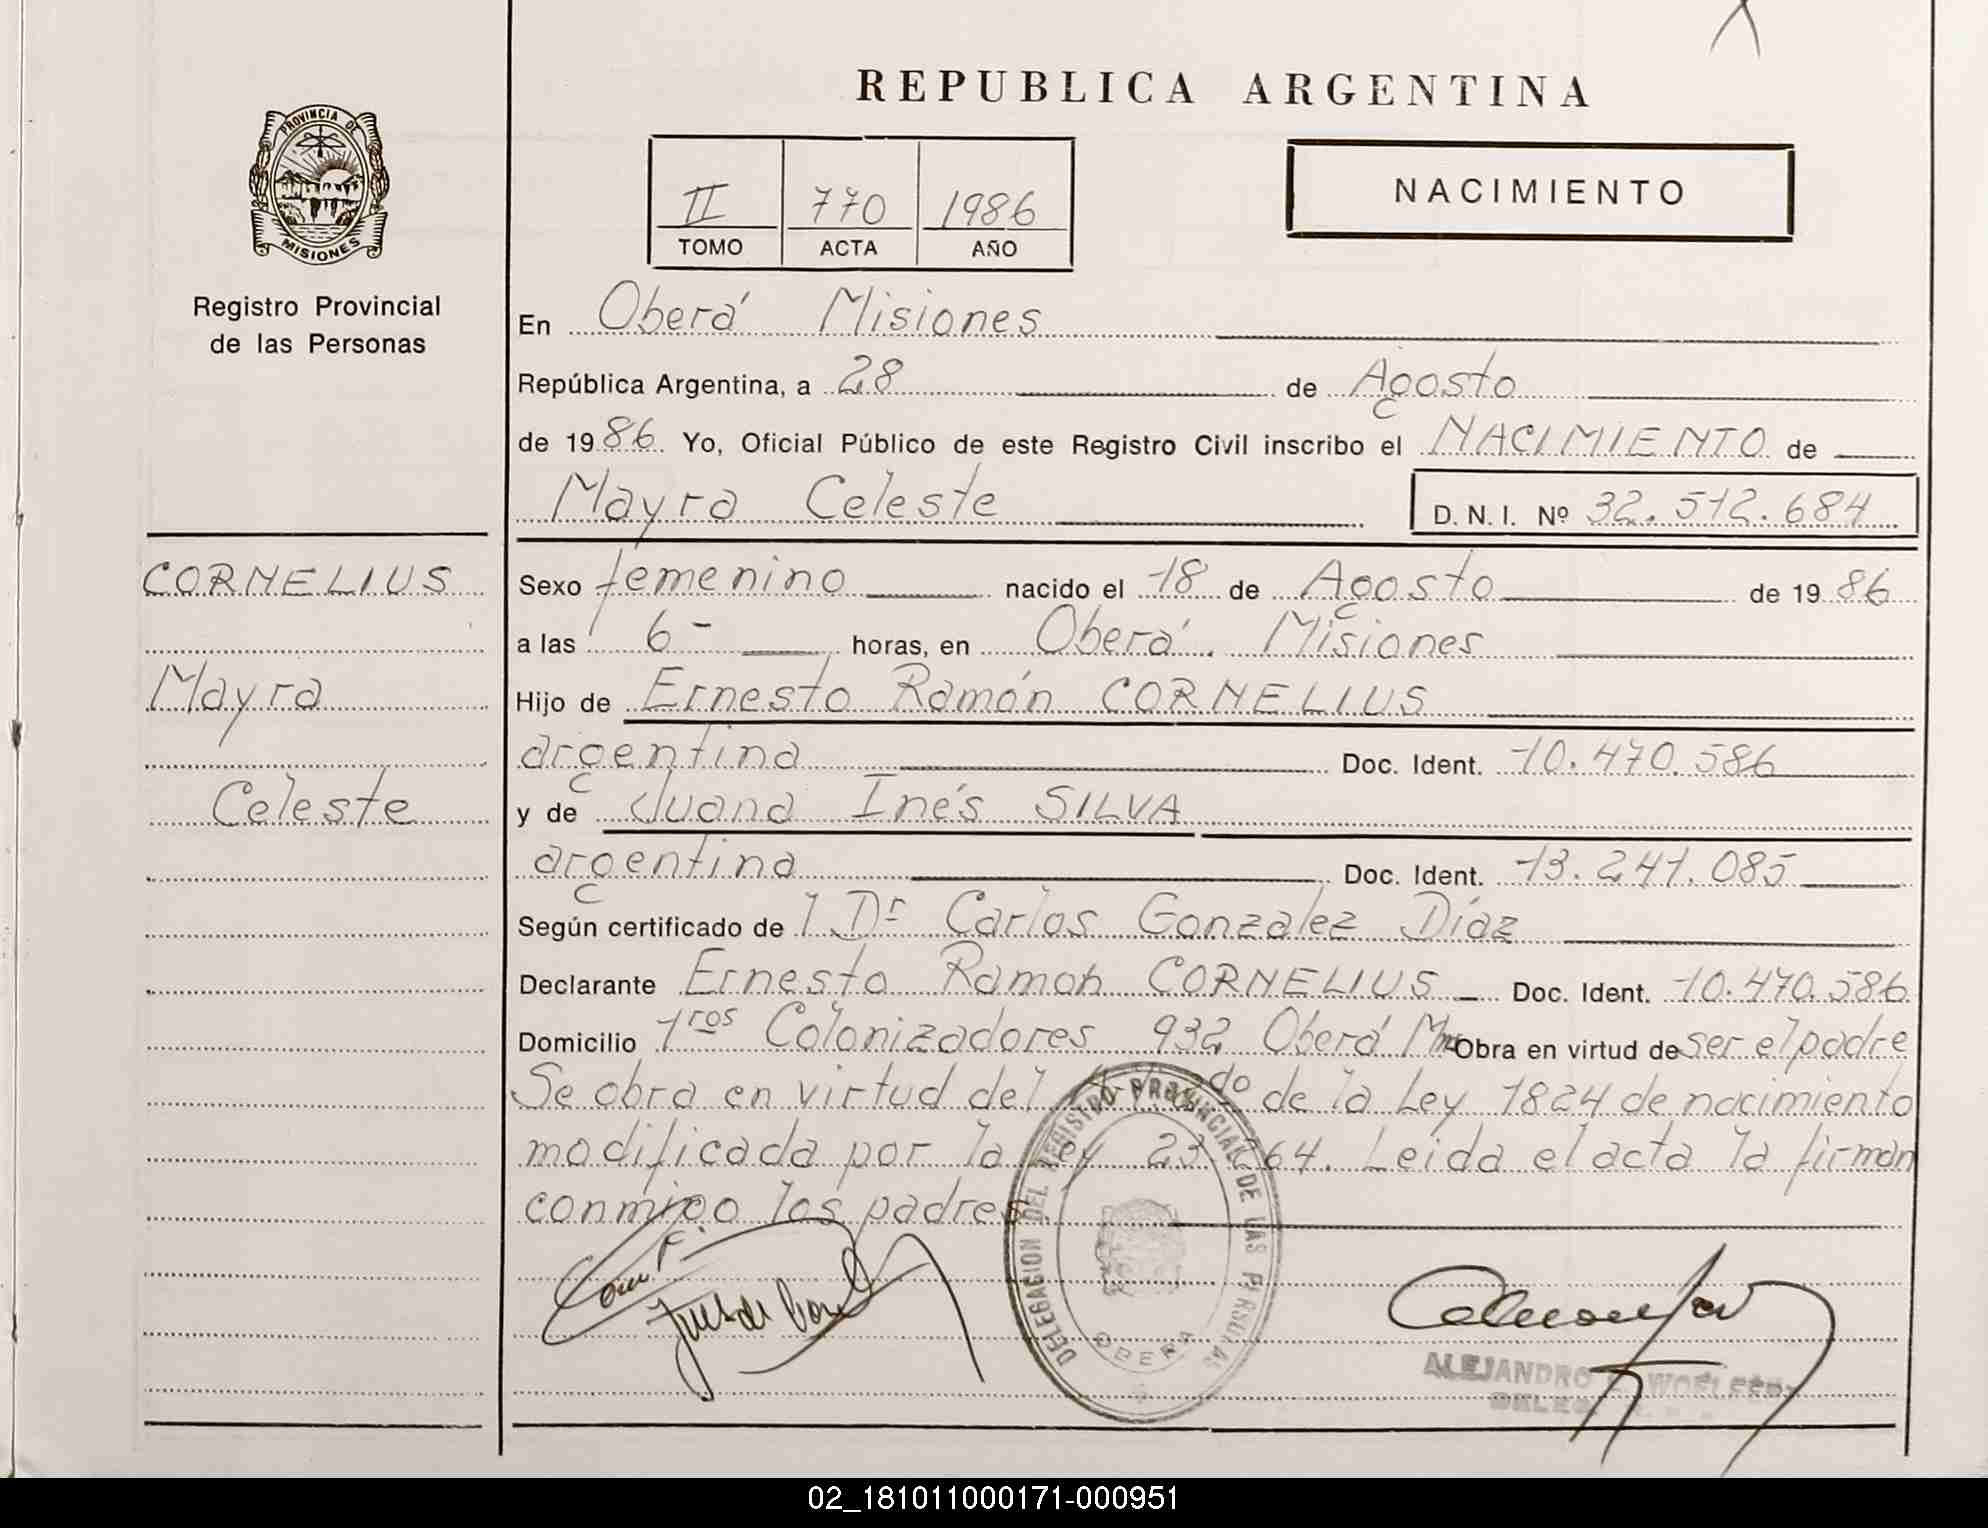 REPUBLICA ARGENTINA
PROVINCIA DE
MISIONES
Registro Provincial
de las Personas
II 770 1986
TOMO ACTA AÑO
NACIMIENTO
En Oberá Misiones
República Argentina, a 28 de Agosto
de 1986. Yo, Oficial Público de este Registro Civil inscribo el NACIMIENTO de
Mayra Celeste D. N. I. Nº 32.512.684
CORNELIUS
Mayra
Celeste
Sexo femenino nacido el 18 de Agosto de 1986
a las 6- horas, en Oberá. Misiones
Hijo de Ernesto Ramón CORNELIUS
argentina Doc. Ident. 10.470.586
y de Juana Inés SILVA
argentina Doc. Ident. 13.241.085
Según certificado de l Dr Carlos Gonzalez Díaz
Declarante Ernesto Ramon CORNELIUS Doc. Ident. 10.470.586
Domicilio 1ros Colonizadores 932 Oberá Mnes Obra en virtud de ser el padre
Se obra en virtud del de la Ley 1824 de nacimiento
modificada por la Ley 23.264. Leida el acta la firman
conmigo los padres.
DELEGACION DEL REGISTRO PROVINCIAL DE LAS PERSONAS
OBERA
ALEJANDRO
02_181011000171-000951